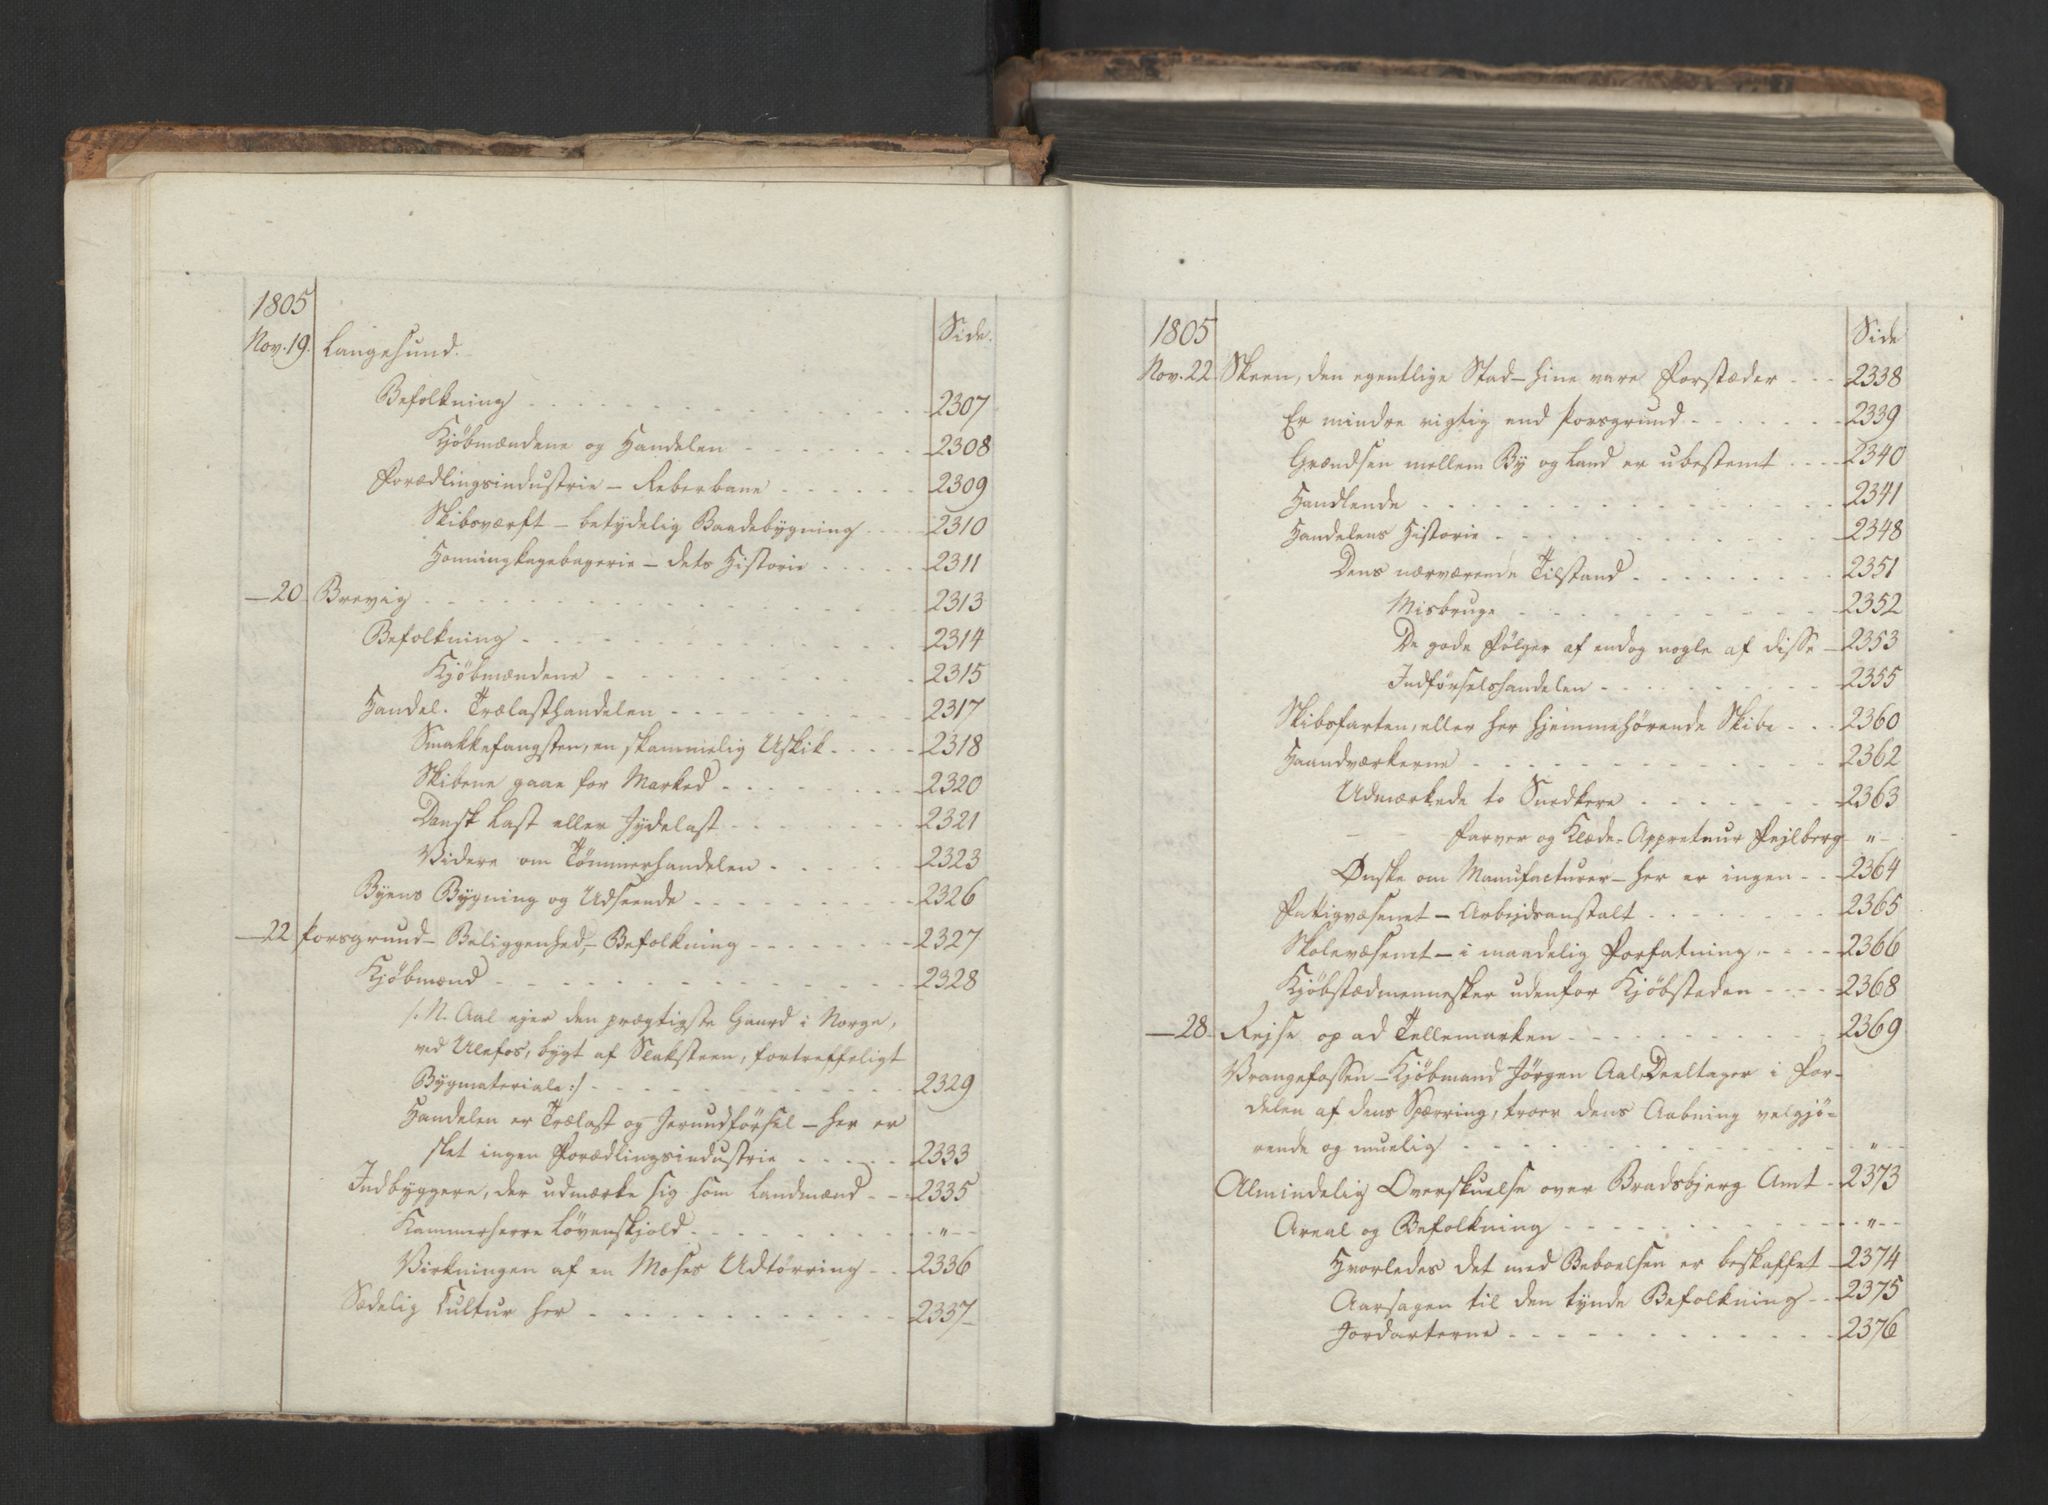 1805
Side.
Nov. 19. Langesund.
Befolkning 2307
Kjøbmændene og Handelen 2308
Forædlingsindustrie – Reberbane 2309
Skibsværft – betydelig Baadebygning 2310
Honningkagebagerie – dets Historie 2311
— 20 Brevig 2313
Befolkning 2314
Kjøbmændene 2315
Handel. Trælasthandelen 2317
Smakkefangsten, en skammelig Uskik 2318
Skibene gaae for Marked 2320
Dansk Last eller Jydelast 2321
Videre om Tømmerhandelen 2323
Byens Bygning og Udseende 2326
— 22 Porsgrund – Beliggenhed, – Befolkning 2327
Kjøbmænd 2328
/: N. Aal ejer den prægtigste Gaard i Norge,
ved Ulefos, bygt af Slaksteen, fortreffeligt
Bygmateriale :/ 2329
Handelen er Trælast og Jernudførsel – her er
slet ingen Forædlingsindustrie 2333
Indbyggere, der udmærke sig som Landmænd 2335
Kammerherre Løvenskjold "
Virkningen af en Moses Udtørring 2336
Sædelig Cultur her 2337
1805
Side
Nov. 22 Skeen, den egentlige Stad – hine vare Forstæder 2338
Er mindre vigtig end Porsgrund 2339
Grændsen mellem By og Land er ubestemt 2340
Handlende 2341
Handelens Historie 2348
Dens nærværende Tilstand 2351
Misbruge 2352
De gode Følger af endog nogle af disse 2353
Indførselshandelen 2355
Skibsfarten, eller her hjemmehørende Skibe 2360
Haandværkerne 2362
Udmærkede to Snedkere 2363
– – Farver og Klæde-Appreteur Fejlberg "
Ønske om Manufacturer – her er ingen 2364
Fattigvæsenet – Arbejdsanstalt 2365
Skolevæsenet – i maadelig Forfatning 2366
Kjøbstædmennesker udenfor Kjøbstaden 2368
— 28 Rejse op ad Tellemarken 2369
Vrangefossen – Kjøbmand Jørgen Aal, Deeltager i For-
delen af dens Spærring, troer dens Aabning velgjø-
rende og muelig "
Almindelig Overskuelse over Bradsbjerg Amt 2373
Areal og Befolkning "
Hvorledes det med Beboelsen er beskaffet 2374
Aarsagen til den tynde Befolkning 2375
Jordarterne 2376